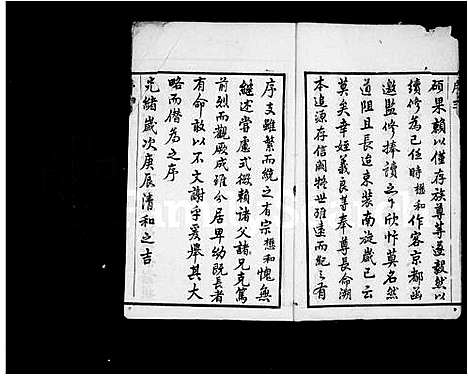 碩果賴以僅存族尊等遂毅然以
續修為己任時想和作客京都函
邀監修捧讀之下欣忭莫名然
道阻且長迨束裝南旋歲已云
莫矣幸姪義良等奉尊長命溯
本追源存信闕疑世雖遠而紀之有
序支雖繁而統之有宗想和愧無
繼述當慮式微賴諸父諸兄克篤
前烈而觀厥成雖分居卑幼既長者
有命敢以不文謝乎爰舉其大
略而僭為之序
光緒歲次庚辰清和之吉